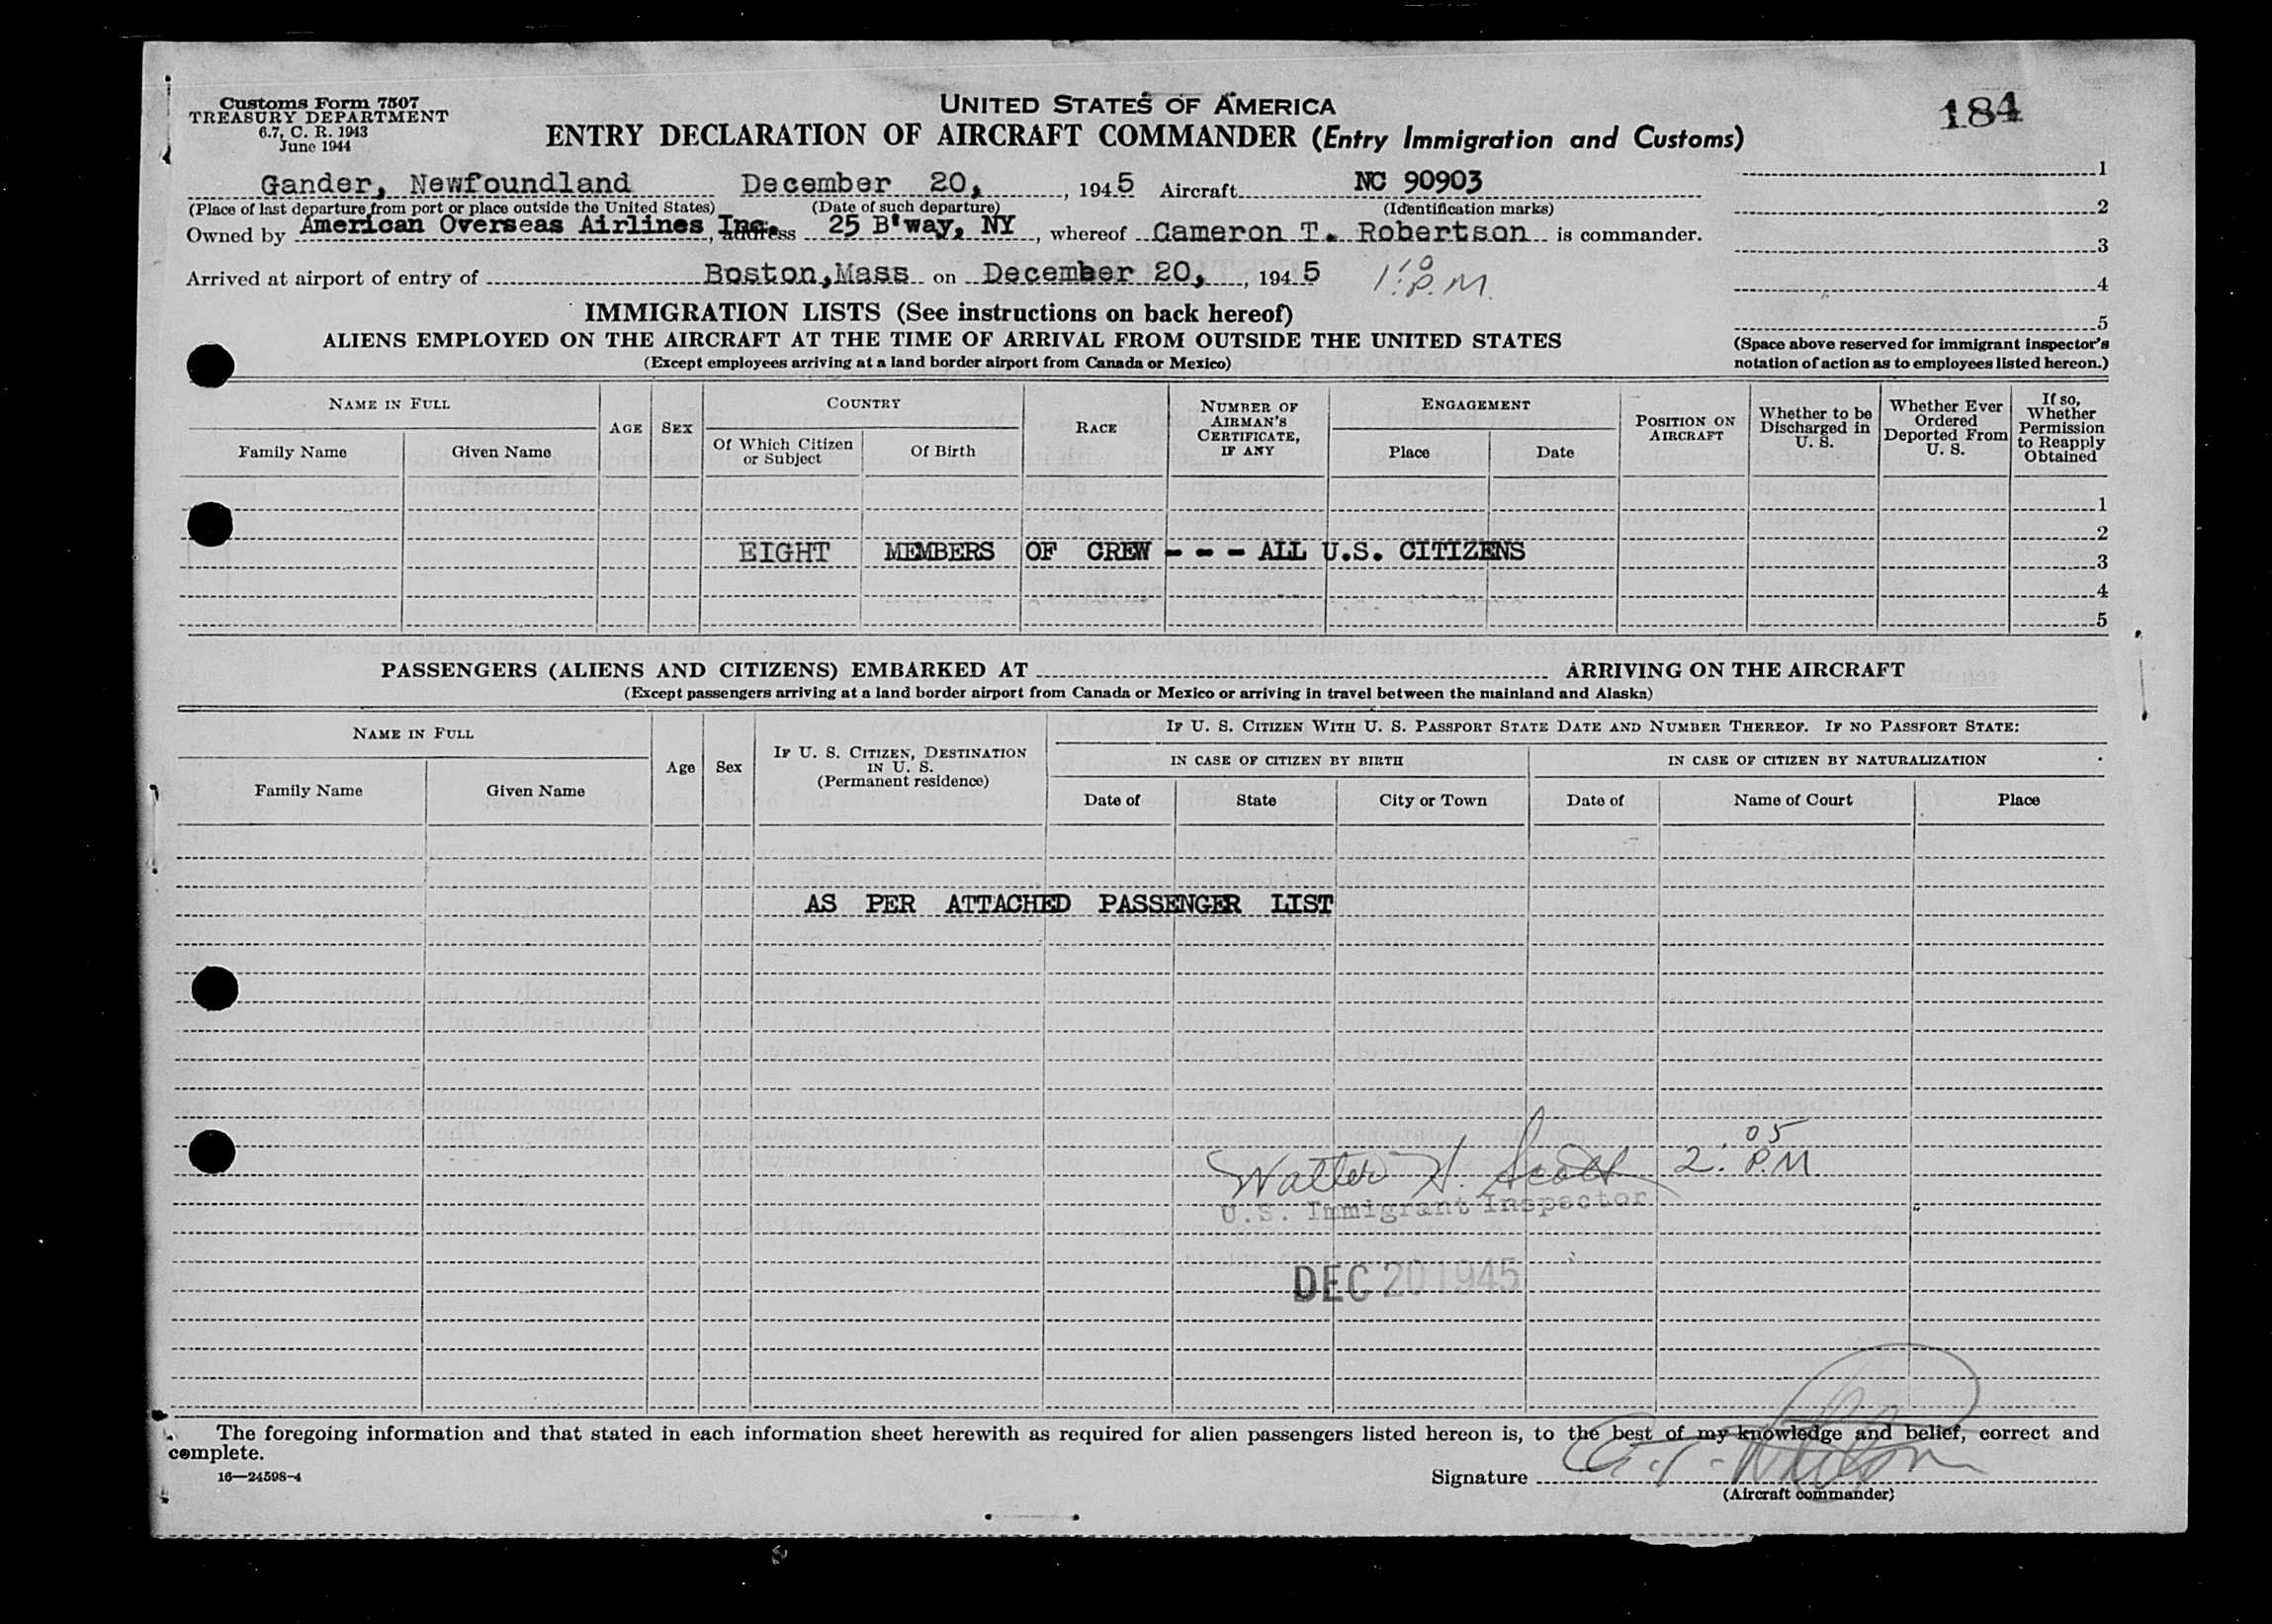 Customs Form 7507
TREASURY DEPARTMENT
6.7, C. R. 1943
June 1944
UNITED STATES OF AMERICA
ENTRY DECLARATION OF AIRCRAFT COMMANDER (Entry Immigration and Customs)
184
Gander, Newfoundland December 20, , 1945 Aircraft NC 90903
(Place of last departure from port or place outside the United States) (Date of such departure) (Identification marks)
Owned by American Overseas Airlines, Inc. Address 25 B'way, NY, whereof Cameron T. Robertson is commander.
Arrived at airport of entry of Boston,Mass on December 20, , 1945 1:10 P.M.
1
2
3
4
5
(Space above reserved for immigrant inspector's
notation of action as to employees listed hereon.)
IMMIGRATION LISTS (See instructions on back hereof)
ALIENS EMPLOYED ON THE AIRCRAFT AT THE TIME OF ARRIVAL FROM OUTSIDE THE UNITED STATES
(Except employees arriving at a land border airport from Canada or Mexico)
NAME IN FULL
Family Name Given Name
AGE
SEX
COUNTRY
Of Which Citizen
or Subject
Of Birth
RACE
NUMBER OF
AIRMAN'S
CERTIFICATE,
IF ANY
ENGAGEMENT
Place Date
POSITION ON
AIRCRAFT
Whether to be
Discharged in
U. S.
Whether Ever
Ordered
Deported From
U. S.
If so,
Whether
Permission
to Reapply
Obtained
1
2
EIGHT MEMBERS OF CREW - - - ALL U.S. CITIZENS
3
4
5
PASSENGERS (ALIENS AND CITIZENS) EMBARKED AT ARRIVING ON THE AIRCRAFT
(Except passengers arriving at a land border airport from Canada or Mexico or arriving in travel between the mainland and Alaska)
NAME IN FULL
Family Name Given Name
Age
Sex
IF U. S. CITIZEN, DESTINATION
IN U. S.
(Permanent residence)
IF U. S. CITIZEN WITH U. S. PASSPORT STATE DATE AND NUMBER THEREOF. IF NO PASSPORT STATE:
IN CASE OF CITIZEN BY BIRTH IN CASE OF CITIZEN BY NATURALIZATION
Date of State City or Town Date of Name of Court Place
AS PER ATTACHED PASSENGER LIST
Walter H. Scott 2:05 P.M
U.S. Immigrant Inspector
DEC 20 1945
The foregoing information and that stated in each information sheet herewith as required for alien passengers listed hereon is, to the best of my knowledge and belief, correct and
complete.
16—24598-4
Signature
(Aircraft commander)